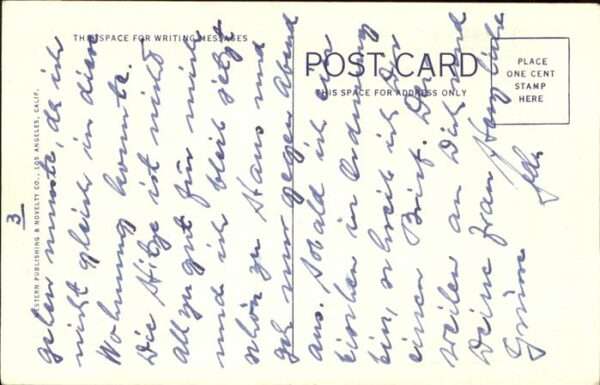 THIS SPACE FOR WRITING MESSAGES
POST CARD
THIS SPACE FOR ADDRESS ONLY
PLACE
ONE CENT
STAMP
HERE
WESTERN PUBLISHING & NOVELTY CO., LOS ANGELES, CALIF.
3
gehen musste, da ich
nicht gleich in diese
Wohnung konnte.
Die Hitze ist nicht
allzu gut für mich
und ich bleib jetzt
schön zu Haus und
geh nur gegen Abend
aus. Sobald ich ein
bischen in Ordnung
bin, schreib ich Dir
einen Brief. Der
weilen an Dich und
Deine Frau herzliche
Grüsse